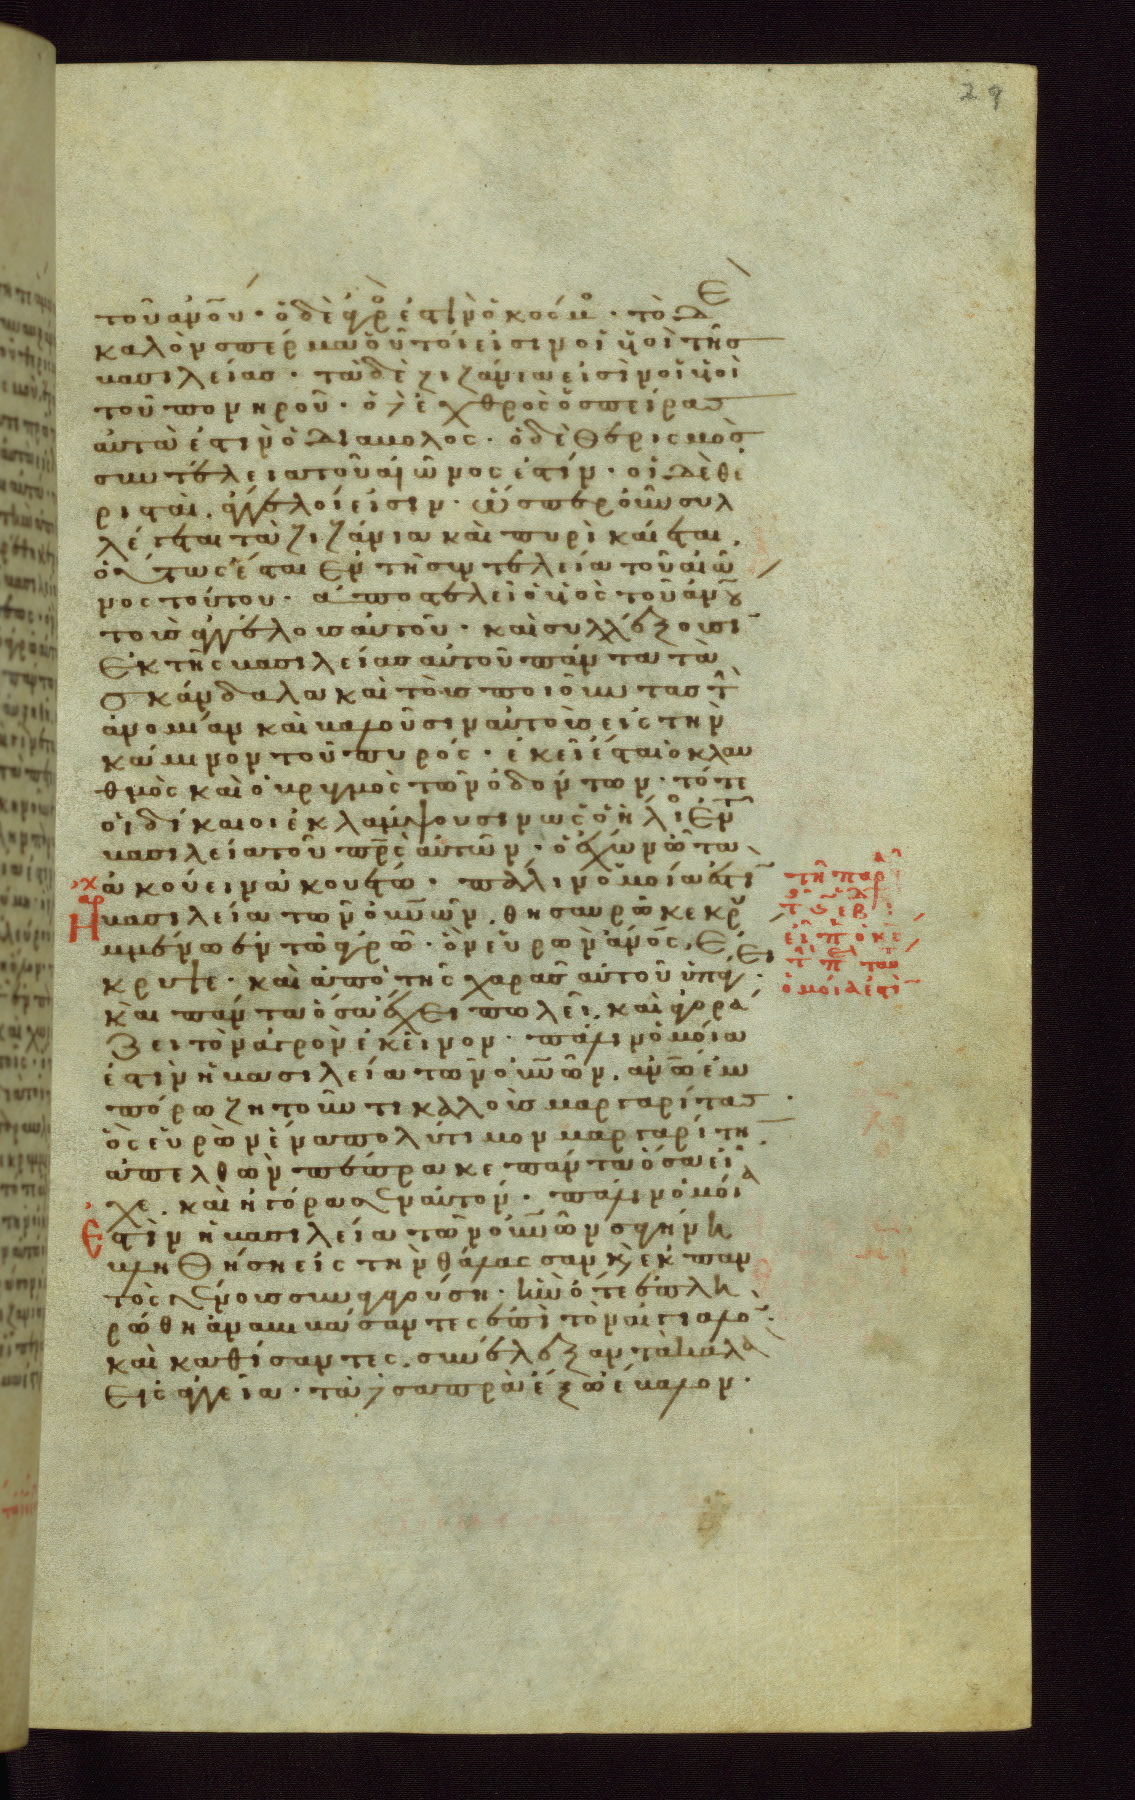 29
τοῦ ἀνο̅υ· ὁ δὲ ἀγρὸς ἐστὶν ὁ κόσμο· τὸ δὲ
καλὸν σπέρμα οὗτοί εἰσιν οἱ υἱοὶ τῆς
βασιλείας· τὰ δὲ ζιζάνια εἰσὶν οἱ υἱοὶ
τοῦ πονηροῦ· ὁ δὲ ἐχθρὸς ὁ σπείρας
αὐτὰ ἐστὶν ὁ διάβολος· ὁ δὲ θερισμὸς
συντέλεια τοῦ αἰῶνος ἐστίν· οἱ δὲ θε
ρισταὶ, ἄγγελοί εἰσιν· ὥσπερ οὖν συλ
λέγεται τὰ ζιζάνια καὶ πυρὶ καίεται,
οὕτως ἔσται ἐν τῇ συντελεία τοῦ αἰῶ
νος τούτου· ἀποστελεῖ ὁ υἱὸς τοῦ ἀνο̅υ
τοὺς ἀγγέλους αὐτοῦ· καὶ συλλέξουσι
ἐκ τῆς βασιλείας αὐτοῦ πάντα τὰ
σκάνδαλα καὶ τοὺς ποιοῦντας τὴ
ἀνομίαν καὶ βαλοῦσιν αὐτοὺς εἰς τὴν
κάμινον τοῦ πυρός· ἐκεῖ ἔσται ὁ κλαυ
θμὸς καὶ ὁ βρυγμὸς τῶν ὀδόντων· τότε
οἱ δίκαιοι ἐκλάμψουσιν ὡς ὁ ἥλιο ἐν τῆ
βασιλεία τοῦ πρ̅ς αὐτῶν· ὁ ἔχων ὦτα
ἀκούειν ἀκουέτω· πάλιν ὁμοία ἐστὶ
Ἡ βασιλεία τῶν οὐν̅ῶν, θησαυρῶ κεκρυ
μμένω ἐν τῶ ἀγρῶ· ὃν εὑρὼν ἀνο̅ς, ἔ
κρυψε· καὶ ἀπὸ τῆς χαρᾶς αὐτοῦ ὑπάγει
καὶ πάντα ὅσα ἔχει πωλεῖ, καὶ ἀγορά
ζει τὸν ἀγρὸν ἐκεῖνον· πάλιν ὁμοία
ἐστὶν ἡ βασιλεία τῶν οὐν̅ῶν, ἀνω̅ ἐμ
πόρω ζητοῦντι καλοὺς μαργαρίτας·
ὃς εὑρὼν ἕνα πολύτιμον μαργαρίτη
ἀπελθὼν πέπρακε πάντα ὅσα εἶ
χε, καὶ ἠγόρασεν αὐτόν· πάλιν ὁμοία
ἐστὶν ἡ βασιλεία τῶν οὐν̅ῶν σαγήνη
βληθήση εἰς τὴν θάλασσαν κ̀ ἐκ παν
τὸς γένους συναγαγούση· ἣν ὅτε ἐπλη
ρώθη ἀναβιβάσαντες ἐπὶ τὸν αἰγιαλὸ
καὶ καθίσαντες, συνέλεξαν τὰ καλὰ
εἰς ἀγγεῖα· τὰ δὲ σαπρὰ ἔξω ἔβαλον·